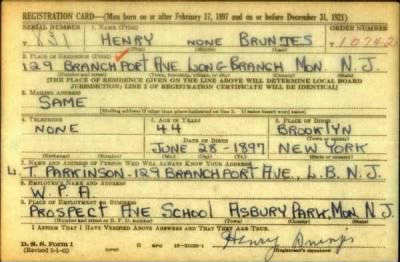 REGISTRATION CARD—(Men born on or after February 17, 1897 and on or before December 31, 1921)
SERIAL NUMBER 1. NAME (Print) ORDER NUMBER
HENRY NONE BRUNJES
(First) (Middle) (Last)
2. PLACE OF RESIDENCE (Print)
129 BRANCHPORT AVE. LONG BRANCH MON. N.J.
(Number and street) (Town, township, village, or city) (County) (State)
[THE PLACE OF RESIDENCE GIVEN ON THE LINE ABOVE WILL DETERMINE LOCAL BOARD
JURISDICTION; LINE 2 OF REGISTRATION CERTIFICATE WILL BE IDENTICAL]
3. MAILING ADDRESS
SAME
[Mailing address if other than place indicated on line 2. If same insert word same]
4. TELEPHONE 5. AGE IN YEARS 6. PLACE OF BIRTH
NONE 44 BROOKLYN
DATE OF BIRTH (Town or county)
JUNE-28-1897 NEW YORK
(Exchange) (Number) (Mo.) (Day) (Yr.) (State or country)
7. NAME AND ADDRESS OF PERSON WHO WILL ALWAYS KNOW YOUR ADDRESS
L.T. PARKINSON-129 BRANCHPORT AVE., L.B. N.J.
8. EMPLOYER'S NAME AND ADDRESS
W.P.A.
9. PLACE OF EMPLOYMENT OR BUSINESS
PROSPECT AVE SCHOOL ASBURY PARK, MON. N.J.
(Number and street or R. F. D. number) (Town) (County) (State)
I AFFIRM THAT I HAVE VERIFIED ABOVE ANSWERS AND THAT THEY ARE TRUE.
D. S. S. Form 1
(Revised 4-1-42) (over) Henry Brunjes
(Registrant's signature)